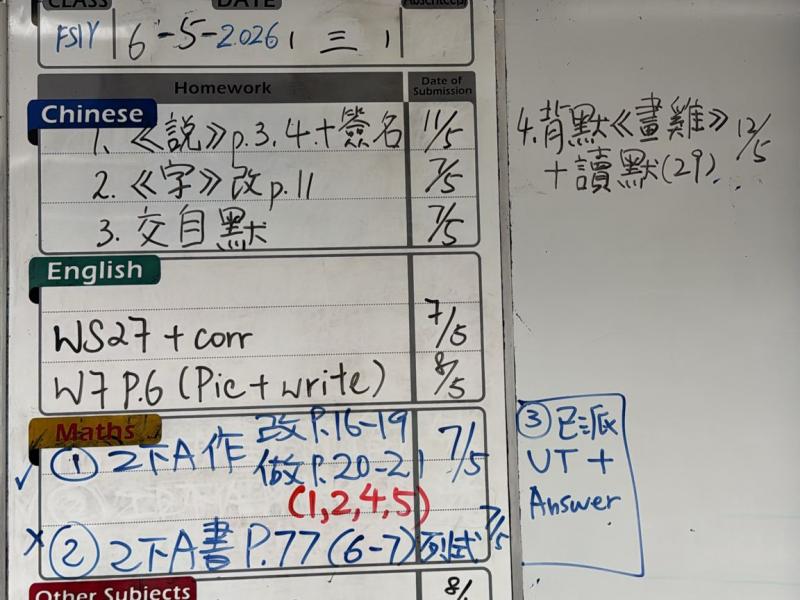 CLASS DATE Absentee(s)
FS1Y 6-5-2026 (三)
Homework Date of Submission
Chinese
1. 《說》p.3.4.+簽名 11/5
2. 《字》改p.11 7/5
3. 交自默 7/5
4.背默《畫雞》 12/5
+讀默(29)
English
WS27 + corr 7/5
W7 P.6 (Pic + write) 8/5
Maths
① 2下A作 改P.16-19 7/5
做P.20-21
(1,2,4,5)
② 2下A書P.77(6-7)列式 7/5
③ 已派
UT +
Answer
Other Subjects 8/